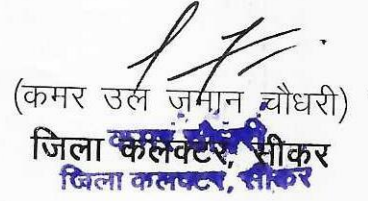 (कमर उल जमान चौधरी)
जिला कलेक्टर, सीकर
जिला कलक्टर, सीकर